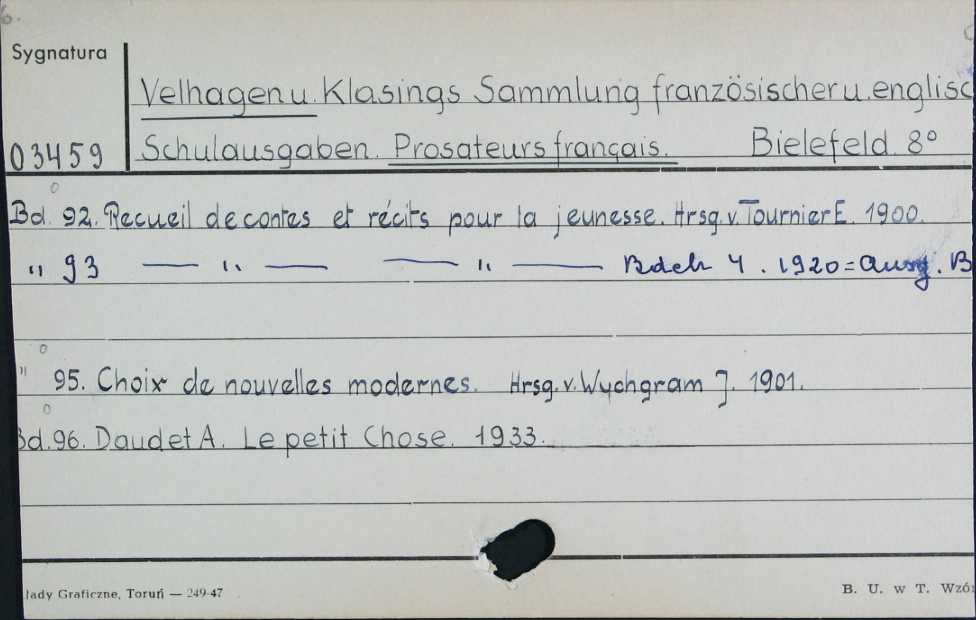 6.
Sygnatura
Velhagen u. Klasings Sammlung französischer u. englisc
03459 Schulausgaben. Prosateurs français. Bielefeld. 8°
Bd. 92. Recueil de contes et récits pour la jeunesse. Hrsg. v. Tournier E. 1900.
" 93 — " — — " — Bdch 4. 1920 = Ausg. B
" 95. Choix de nouvelles modernes. Hrsg. v. Wychgram J. 1901.
Bd. 96. Daudet A. Le petit Chose. 1933.
łady Graficzne, Toruń — 249-47
B. U. w T. Wzór